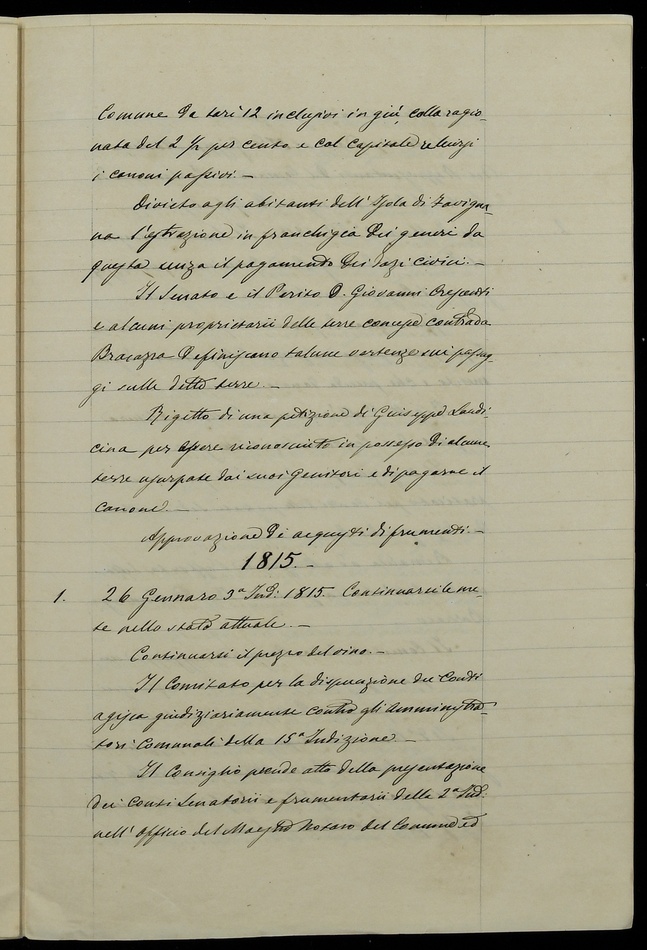 Comune da tarì 12 inclusivi in giù, colla ragio-
nata del 2 1/2 per cento e col capitale
i canoni passivi. —
Divieto agli abitanti dell'Isola di Favigna-
na l'estrazione in franchigia dei generi da
questa senza il pagamento dei dazi civici. —
Il Senato e il Perito D. Giovanni Crescenti
e alcuni proprietarii delle terre concesse contrada
definiscano talune vertenze sui passag-
gi sulle dette terre. —
Rigetto di una petizione di Giuseppe Laudi-
cina per essere riconosciuto in possesso di alcune
terre usurpate dai suoi Genitori e di pagarne il
canone. —
Approvazione di acquisti di frumenti. —
1815. —
1. 26 Gennaro 3ª Ind: 1815. Continuarsi le me-
te nello stato attuale. —
Continuarsi il prezzo del vino. —
Il Comitato per la discussione dei Conti
agisca giudiziariamente contro gli Amministra-
tori Comunali della 15ª Indizione —
Il Consiglio prende atto della presentazione
dei conti Senatorii e frumentarii della 2ª Ind:
nell'Officio del Maestro Notaro del Comune ed